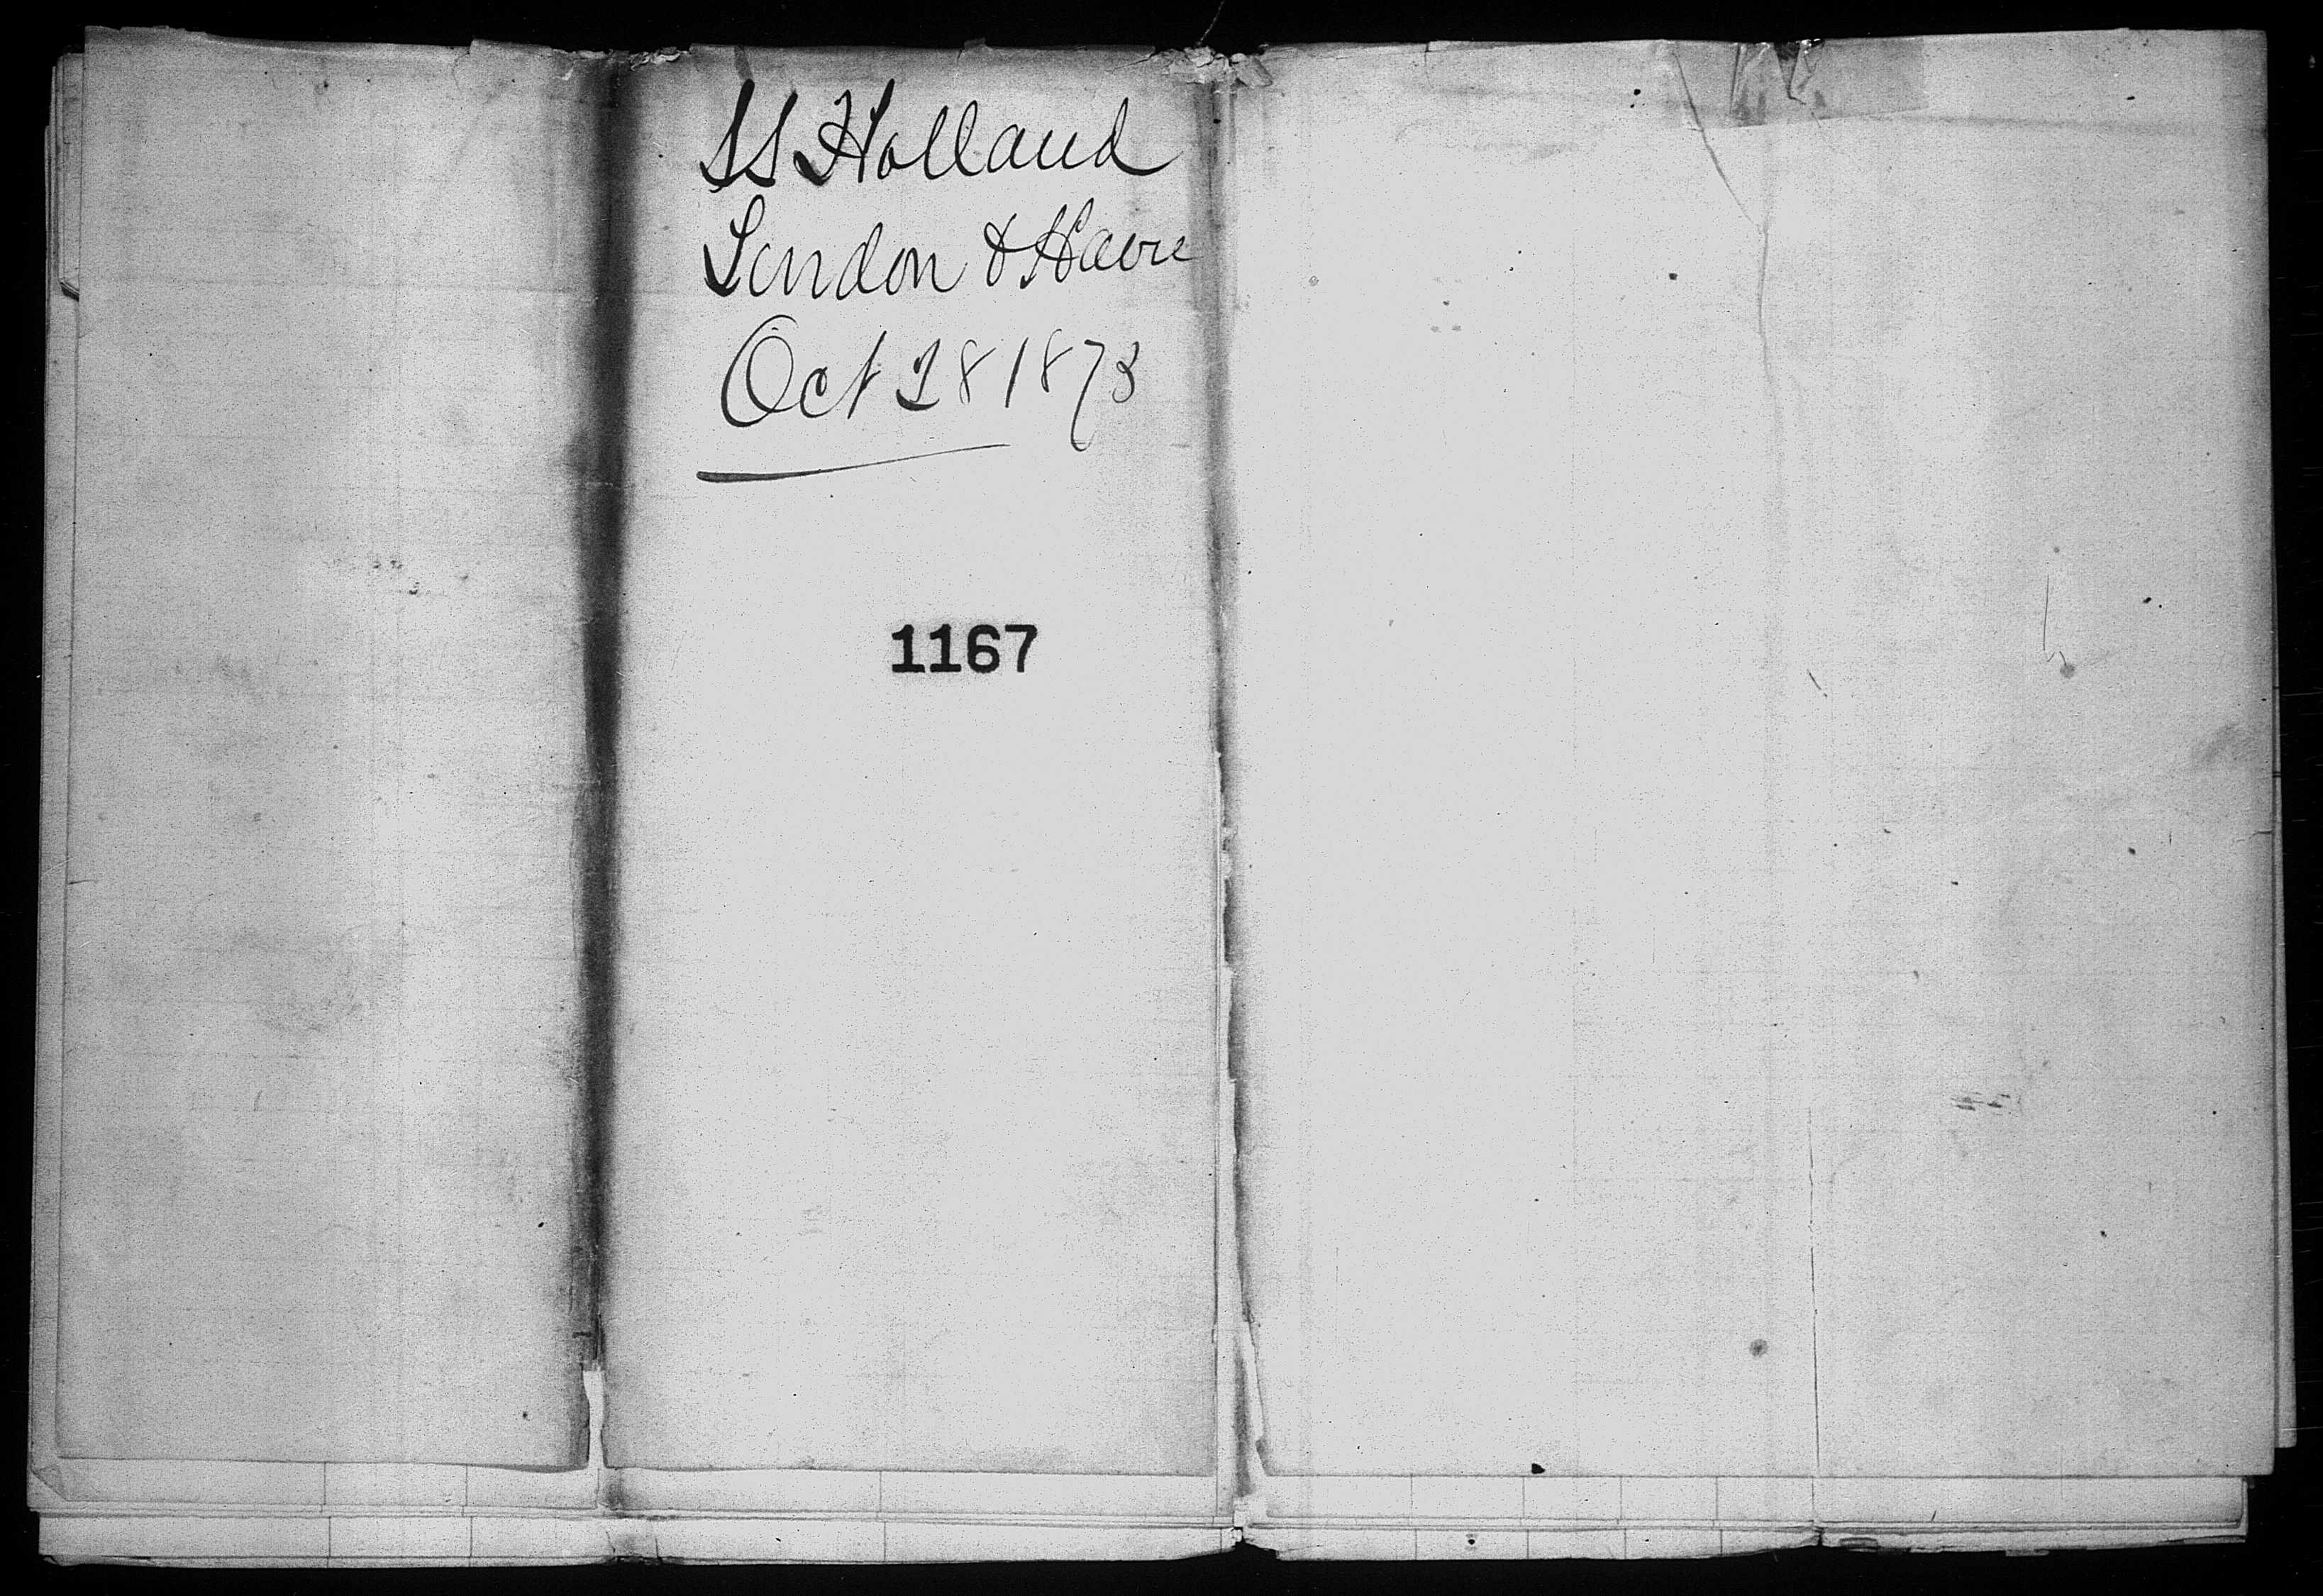 SS Holland
London & Havre
Oct 28 1873
1167